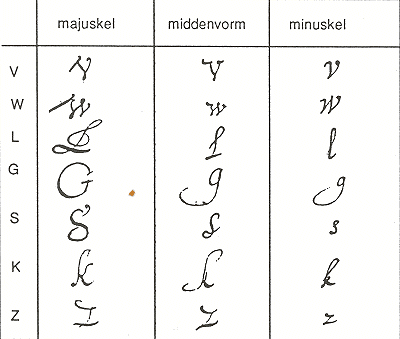 majuskel middenvorm minuskel
V V V v
W W w w
L L l l
G G g g
S S s s
K K k k
Z Z z z